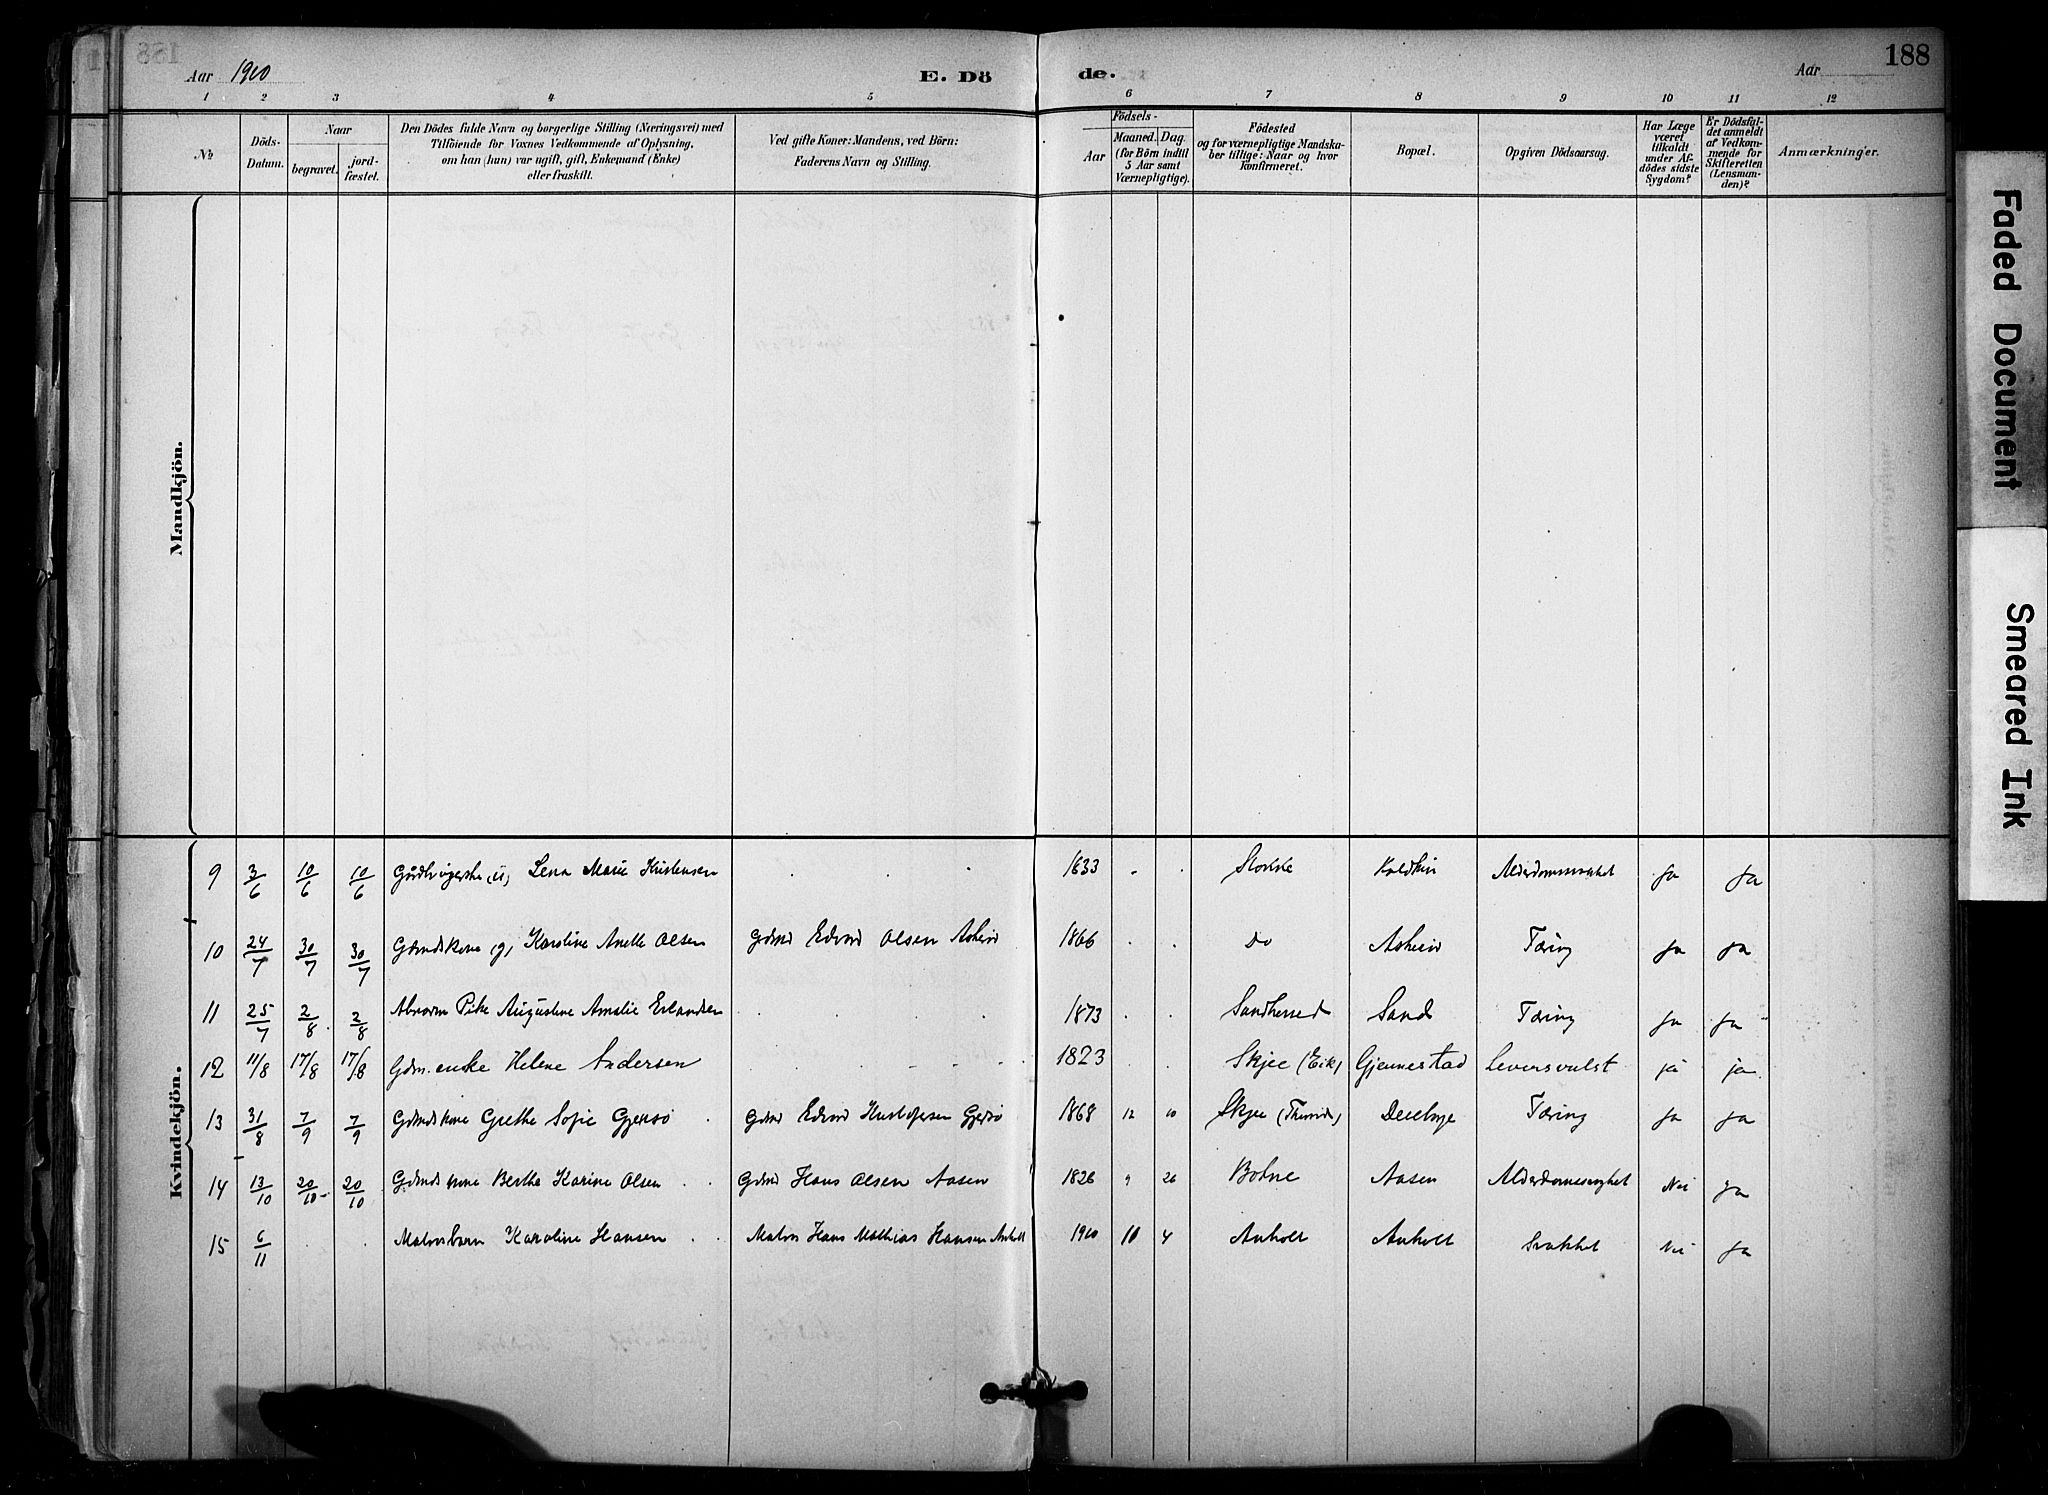 188
Aar 1910
E. Döde.
Aar
1 2 3 4 5 6 7 8 9 10 11 12
No
Döds-Datum.
Naar
begravet.
jord-fæstet.
Den Dödes fulde Navn og borgerlige Stilling (Næringsvei) med
Tilföiende for Voxnes Vedkommende af Oplysning,
om han (hun) var ugift, gift, Enkemand (Enke)
eller fraskilt.
Ved gifte Koner: Mandens, ved Börn:
Faderens Navn og Stilling.
Födsels-
Aar
Maaned. Dag.
(for Börn indtil
5 Aar samt
Værnepligtige).
Födested
og for værnepligtige Mandska-
ber tillige: Naar og hvor
konfirmeret.
Bopæl.
Opgiven Dödsaarsag.
Har Læge
været
tilkaldt
under Af-
dödes sidste
Sygdom?
Er Dödsfal-
det anmeldt
af Vedkom-
mende for
Skifteretten
(Lensman-
den)?
Anmærkninger.
Mandkjön.
Kvindekjön.
9 3/6 10/6 10/6 Lena Marie Kristensen 1833 Stokke Alderdomssvakhet Ja Ja
10 24/7 30/7 30/7 Gdmdskone (g) Karoline Anette Olsen Gdmd Edvard Olsen Askerø 1866 Do Askerø Tæring Ja Ja
11 25/7 2/8 2/8 Pike Augustine Amalie Erlandsen 1873 Sandherred Sand Tæring Ja Ja
12 11/8 17/8 17/8 Gdm. enke Helene Andersen 1823 Skjee (Eik) Gjennestad Leversvulst ja ja
13 31/8 7/9 7/9 Gdmdskone Grethe Sofie Gjersø Gdmd Edvard Kristofersen Gjersø 1868 12 10 Skjee Tæring Ja Ja
14 13/10 20/10 20/10 Gdmds kone Berthe Karine Olsen Gdmd Hans Olsen Aasen 1826 9 26 Botne Aasen Nei Ja
15 6/11 Matrosbarn Karoline Hansen Matros Hans Mathias Hansen Anholt 1910 10 4 Anholt Anholt Svakhet Nei Ja
Faded Document
Smeared Ink